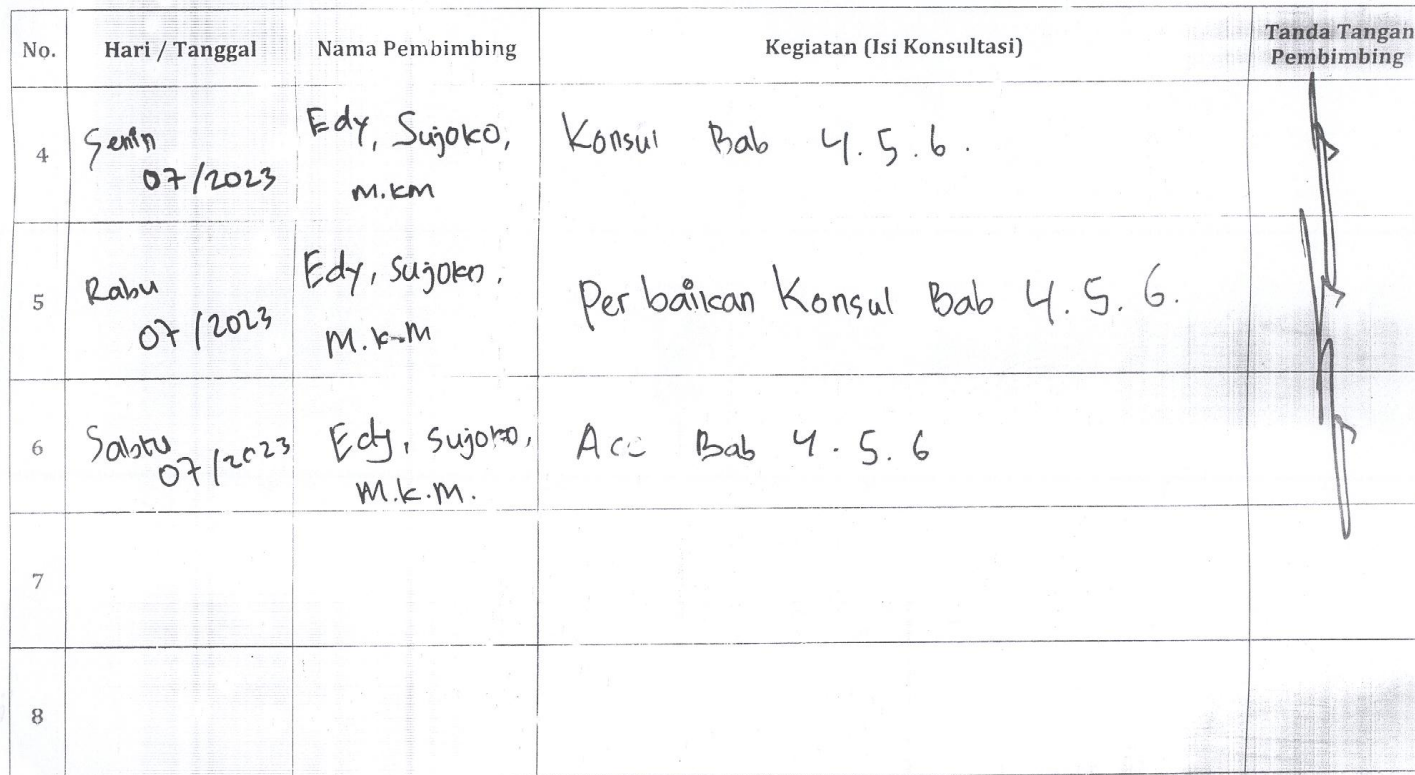 No. Hari / Tanggal Nama Pembimbing Kegiatan (Isi Konsultasi) Tanda Tangan Pembimbing
4 Senin 07/2023 Edy, Sujoko, M.KM Konsul Bab 4.5.6.
5 Rabu 07/2023 Edy, Sujoko, M.K.M Perbaikan Konsul Bab 4.5.6.
6 Sabtu 07/2023 Edy, Sujoko, M.K.M. Acc Bab 4.5.6
7
8